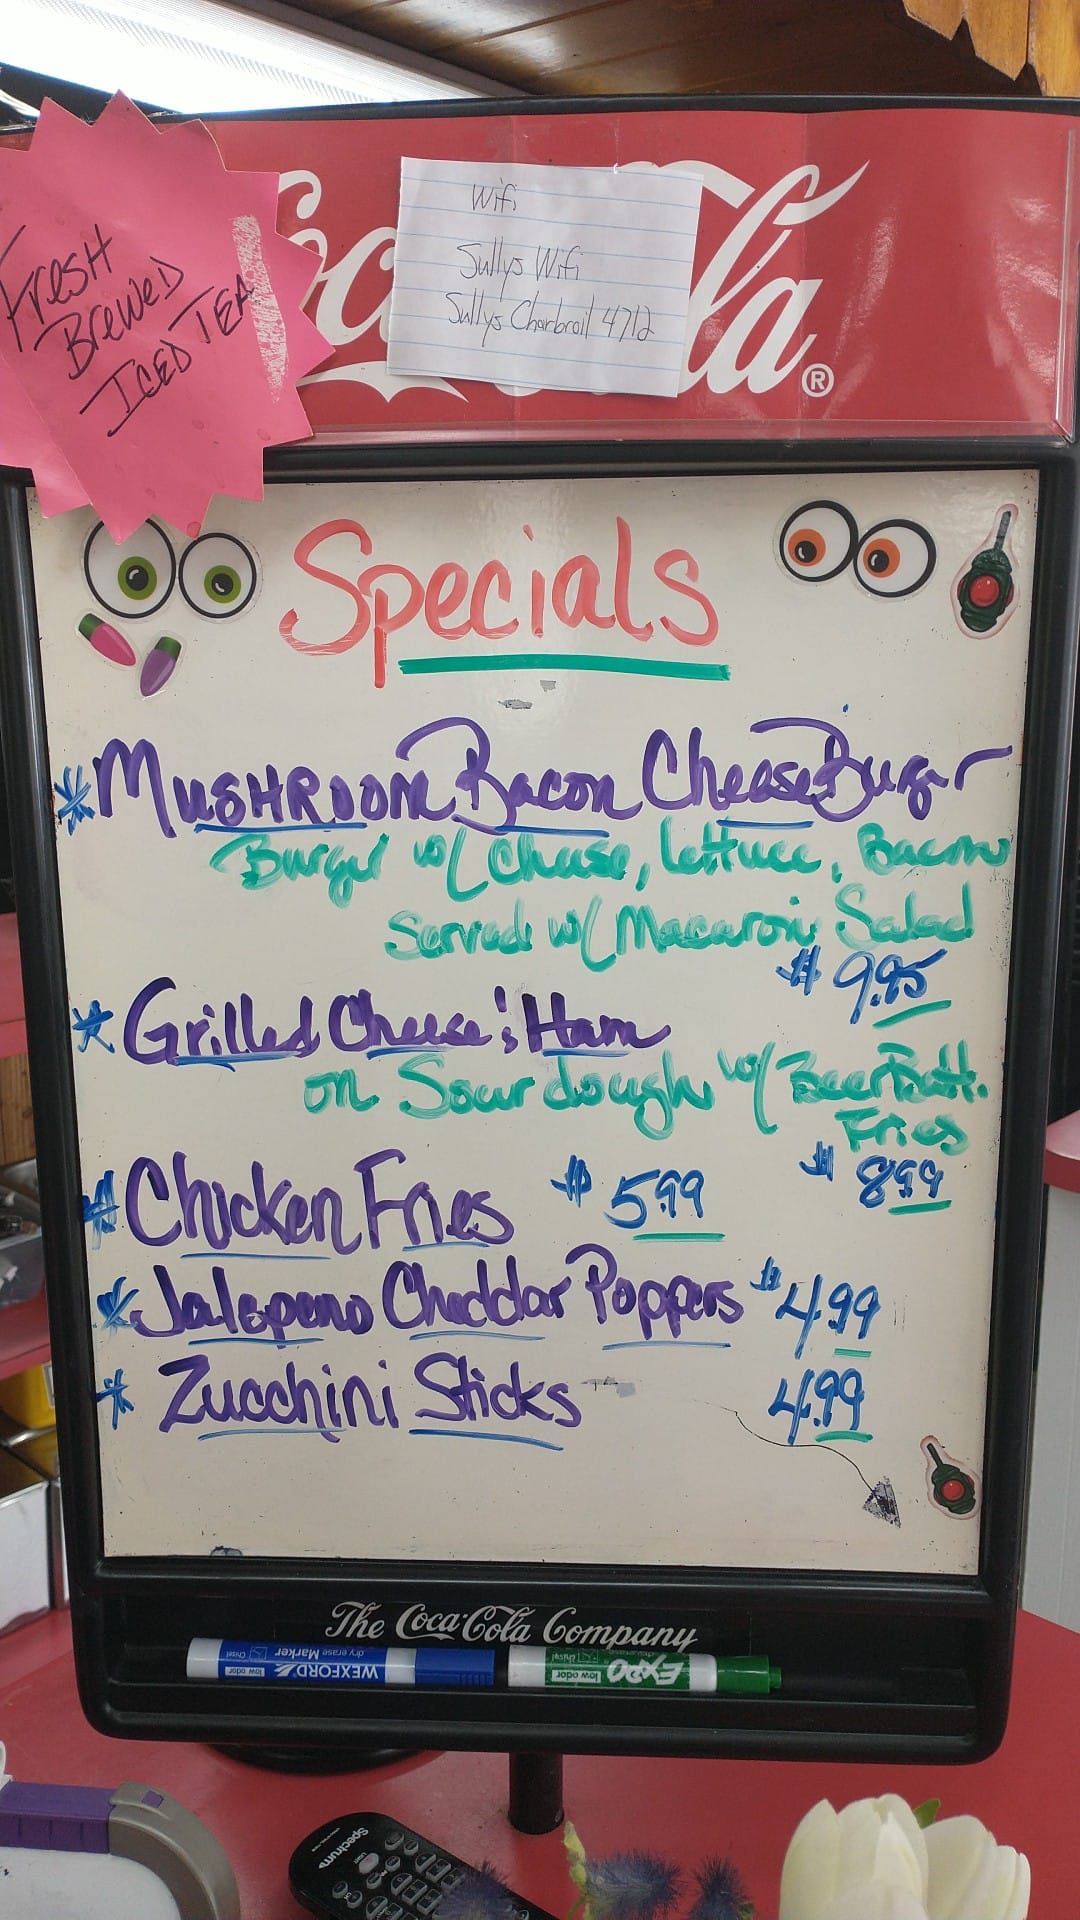 Fresh
Brewed
Iced Tea
Coca-Cola®
Wifi
Sullys Wifi
Sullys Charbroil 4712
Specials
* Mushroom Bacon CheeseBurger
Burger w/ Cheese, lettuce, Bacon
Served w/ Macaroni Salad
$ 9.95
* Grilled Cheese & Ham
on Sourdough w/ BeerBatt.
Fries
$ 8.99
* Chicken Fries $ 5.99
* Jalepeno Cheddar Poppers $ 4.99
* Zucchini Sticks 4.99
The Coca-Cola Company
WEXFORD dry erase Marker low odor Chisel
EXPO low odor Chisel
Spectrum